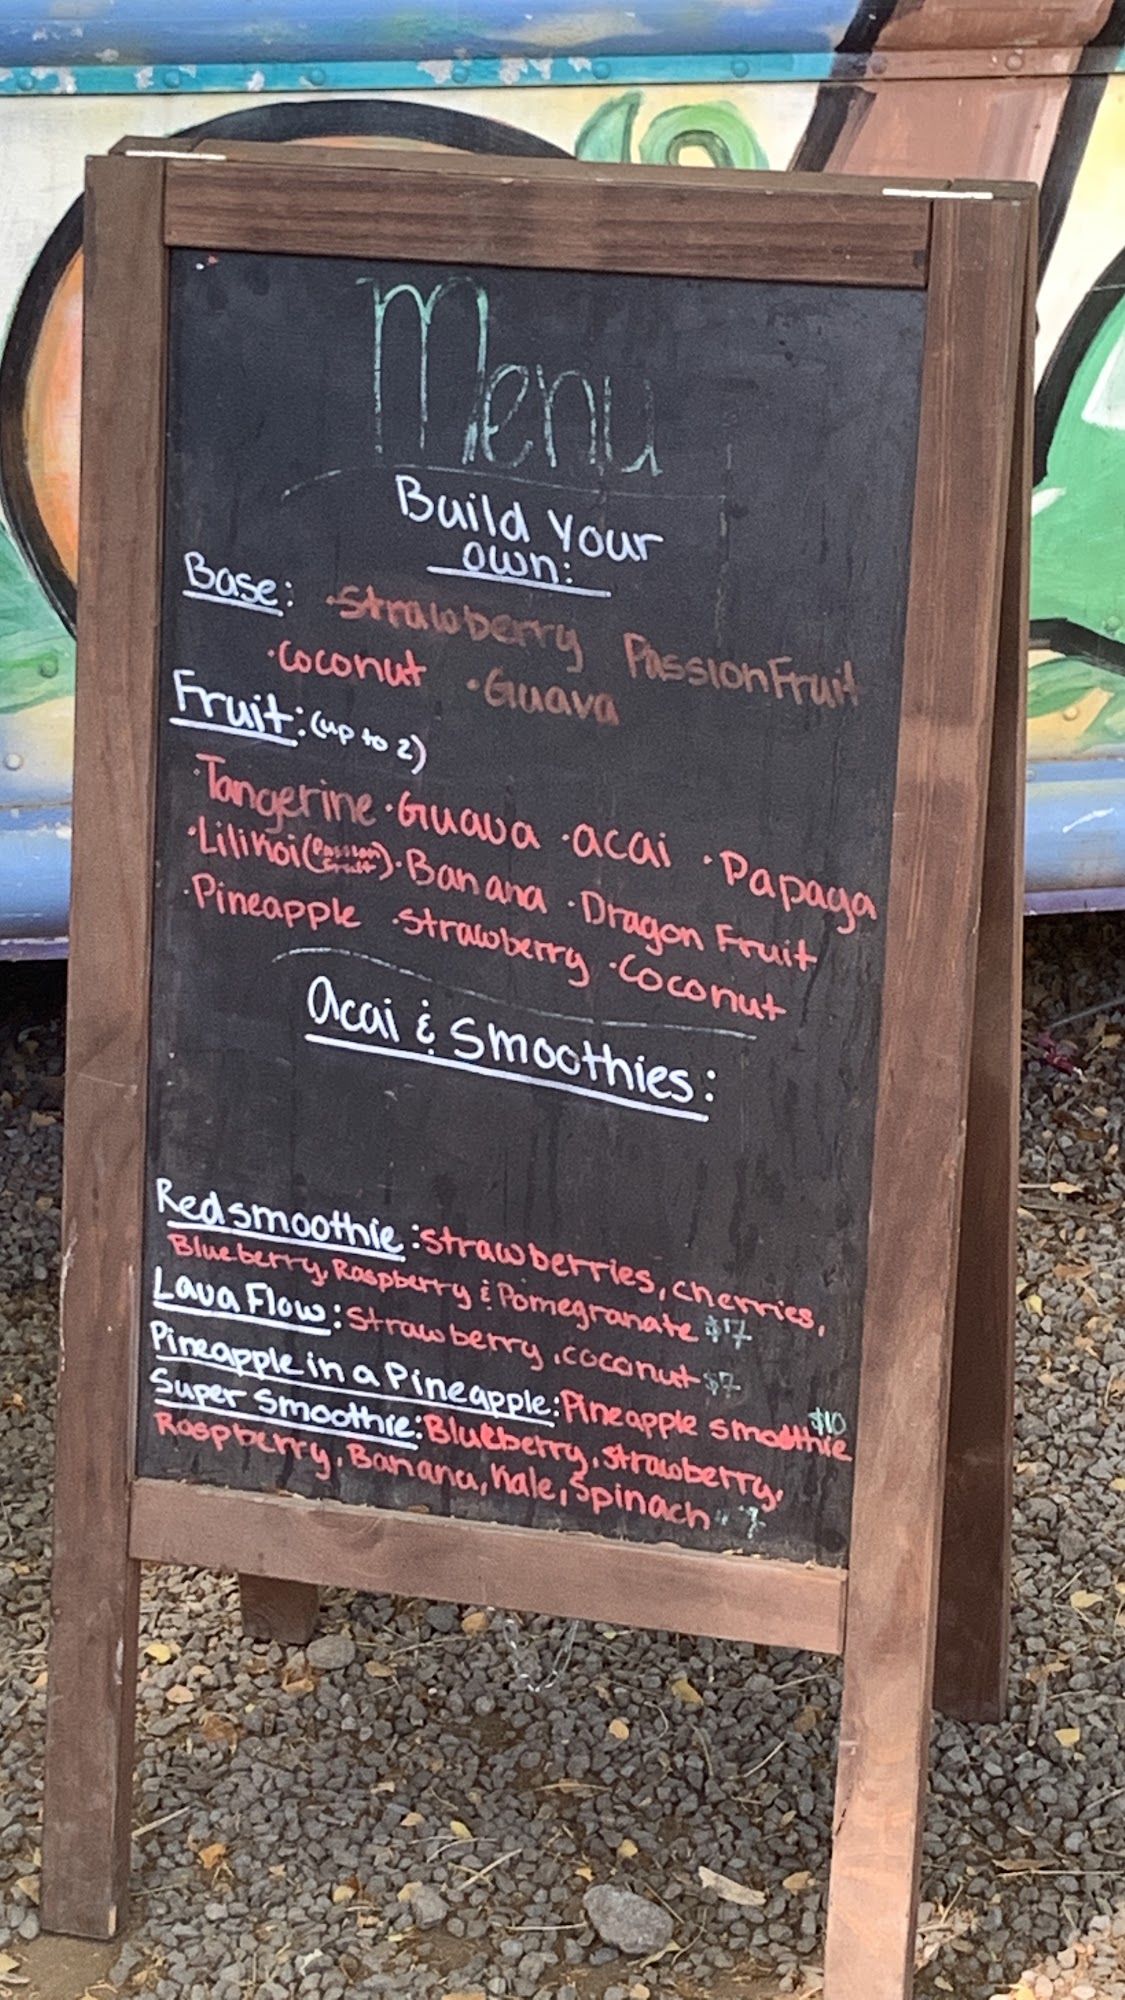 Menu
Build Your
own:
Base: ·Strawberry PassionFruit
·Coconut ·Guava
Fruit: (up to 2)
·Tangerine ·Guava ·acai ·Papaya
·Lilikoi (Passion Fruit) ·Banana ·Dragon Fruit
·Pineapple ·Strawberry ·Coconut
Acai & Smoothies:
Red smoothie: strawberries, cherries,
Blueberry, Raspberry & Pomegranate $7
Lava Flow: Strawberry, coconut $7
Pineapple in a Pineapple: Pineapple smoothie $10
Super Smoothie: Blueberry, Strawberry,
Raspberry, Banana, Kale, Spinach 7